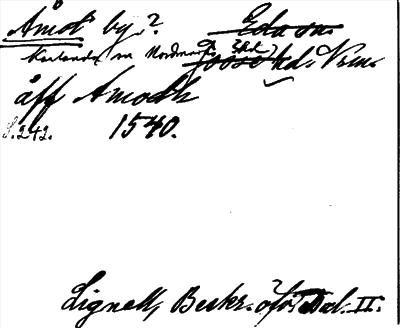 Åmot by? Eda sn.
Karlanda sn Nordmarks hd.
Jösse hd. Vrml.
åff Amodh
S. 242. 1540.
Lignell, Beskr. öfv. Dal. II.